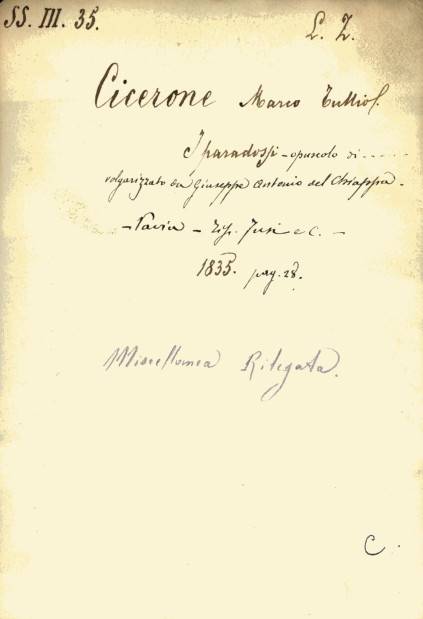 SS. III. 35.
L. Z.
Cicerone Marco Tullio.
I paradossi - opuscolo di ------
volgarizzato da Giuseppe Antonio del Chiappa -
- Pavia - Tip. Fusi e C. -
1835. pag. 28.
Miscellanea Rilegata.
C.